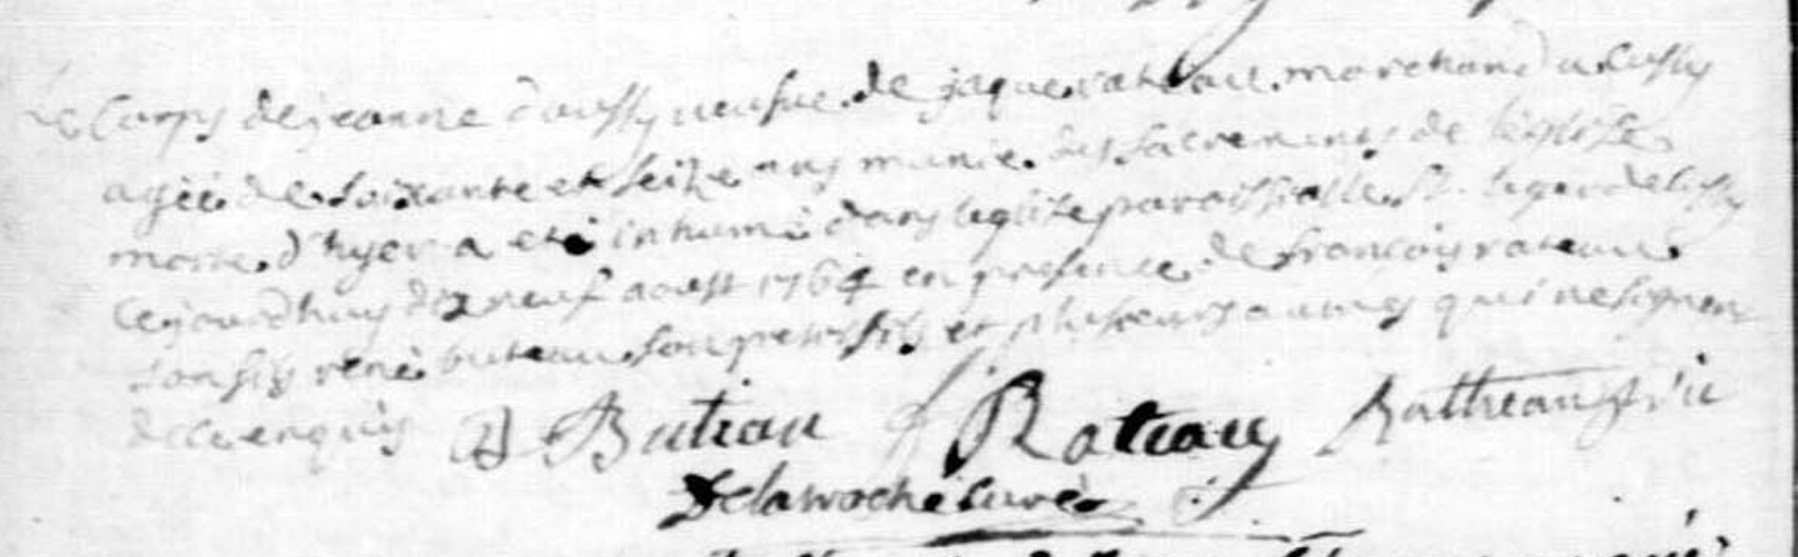 Le Corps de jeanne doussy veufve de jaque ratteau marchand a Lussy
agée de soixante et seize ans munie des sacrements de l'église
morte d'hyer a eté inhumé dans leglise paroissialle St. leger de lussy
cejourdhuy dix neuf aoust 1764 en presence de françois rateau
son fils rené buteau son petit fils et plusieurs autres qui ne signent
de ce enquis Buteau Rateau Rattreau
Delaroche curé